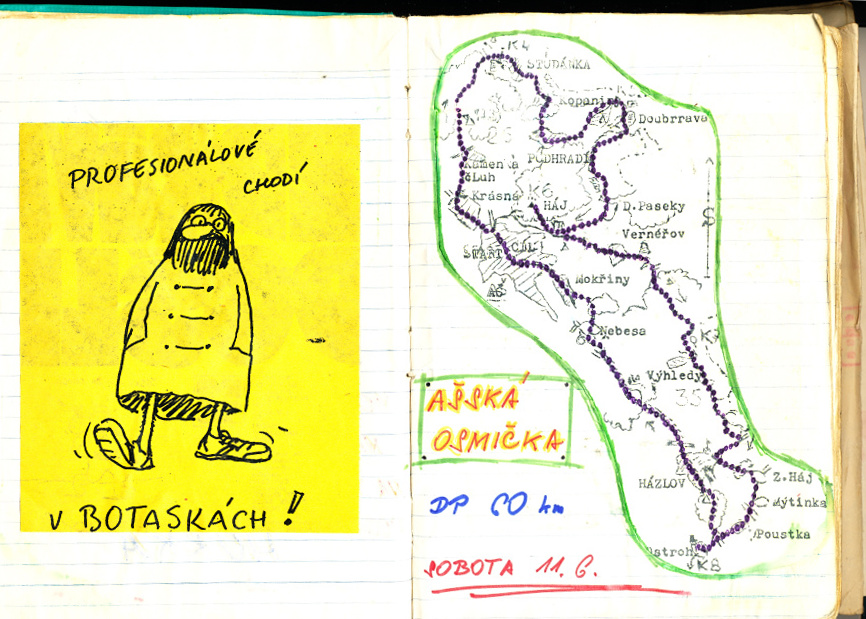 PROFESIONÁLOVÉ
CHODÍ
V BOTASKÁCH!
K4
STUDÁNKA
Kopanin
Doubrrava
25
PODHRADÍ
Kamenká
čLuh
Krásná
K6
HÁJ
D.Paseky
Vernéřov
S
START
CÍL
Mokřiny
AŠ
Nebesa
K7
Výhledy
35
AŠSKÁ
OSMIČKA
HÁZLOV
Z.Háj
Mýtinka
Poustka
Ostroh
K8
DP 60 km
SOBOTA 11.6.